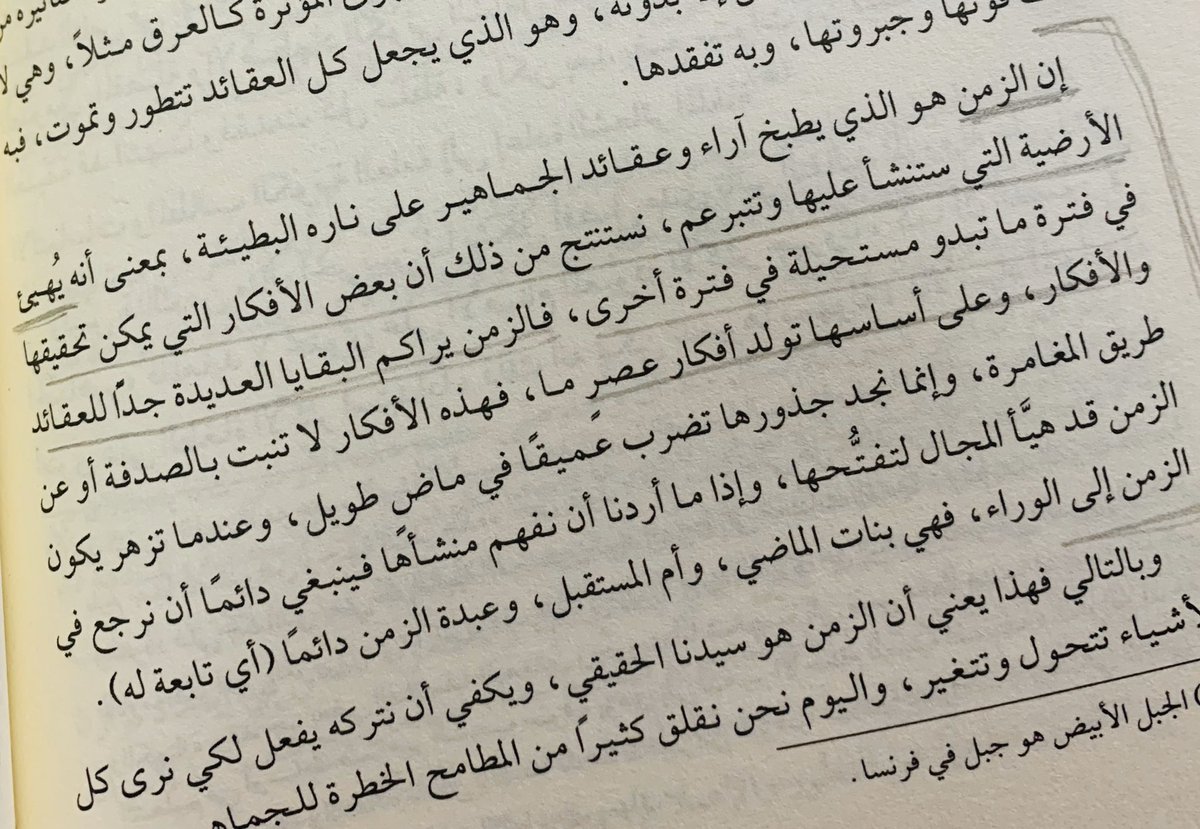 المؤثرة كالعرق مثلاً، وهي لا
بدونه، وهو الذي يجعل كل العقائد تتطور وتموت، فبه
قوتها وجبروتها، وبه تفقدها.
إن الزمن هو الذي يطبخ آراء وعقائد الجماهير على ناره البطيئة، بمعنى أنه يُهيئ
الأرضية التي ستنشأ عليها وتتبرعم، نستنتج من ذلك أن بعض الأفكار التي يمكن تحقيقها
في فترة ما تبدو مستحيلة في فترة أخرى، فالزمن يراكم البقايا العديدة جداً للعقائد
والأفكار، وعلى أساسها تولد أفكار عصرٍ ما، فهذه الأفكار لا تنبت بالصدفة أو عن
طريق المغامرة، وإنما نجد جذورها تضرب عميقًا في ماضٍ طويل، وعندما تزهر يكون
الزمن قد هيَّأ المجال لتفتُّحها، وإذا ما أردنا أن نفهم منشأها فينبغي دائمًا أن نرجع في
الزمن إلى الوراء، فهي بنات الماضي، وأم المستقبل، وعبدة الزمن دائمًا (أي تابعة له).
وبالتالي فهذا يعني أن الزمن هو سيدنا الحقيقي، ويكفي أن نتركه يفعل لكي نرى كل
الأشياء تتحول وتتغير، واليوم نحن نقلق كثيراً من المطامح الخطرة
الجبل الأبيض هو جبل في فرنسا.